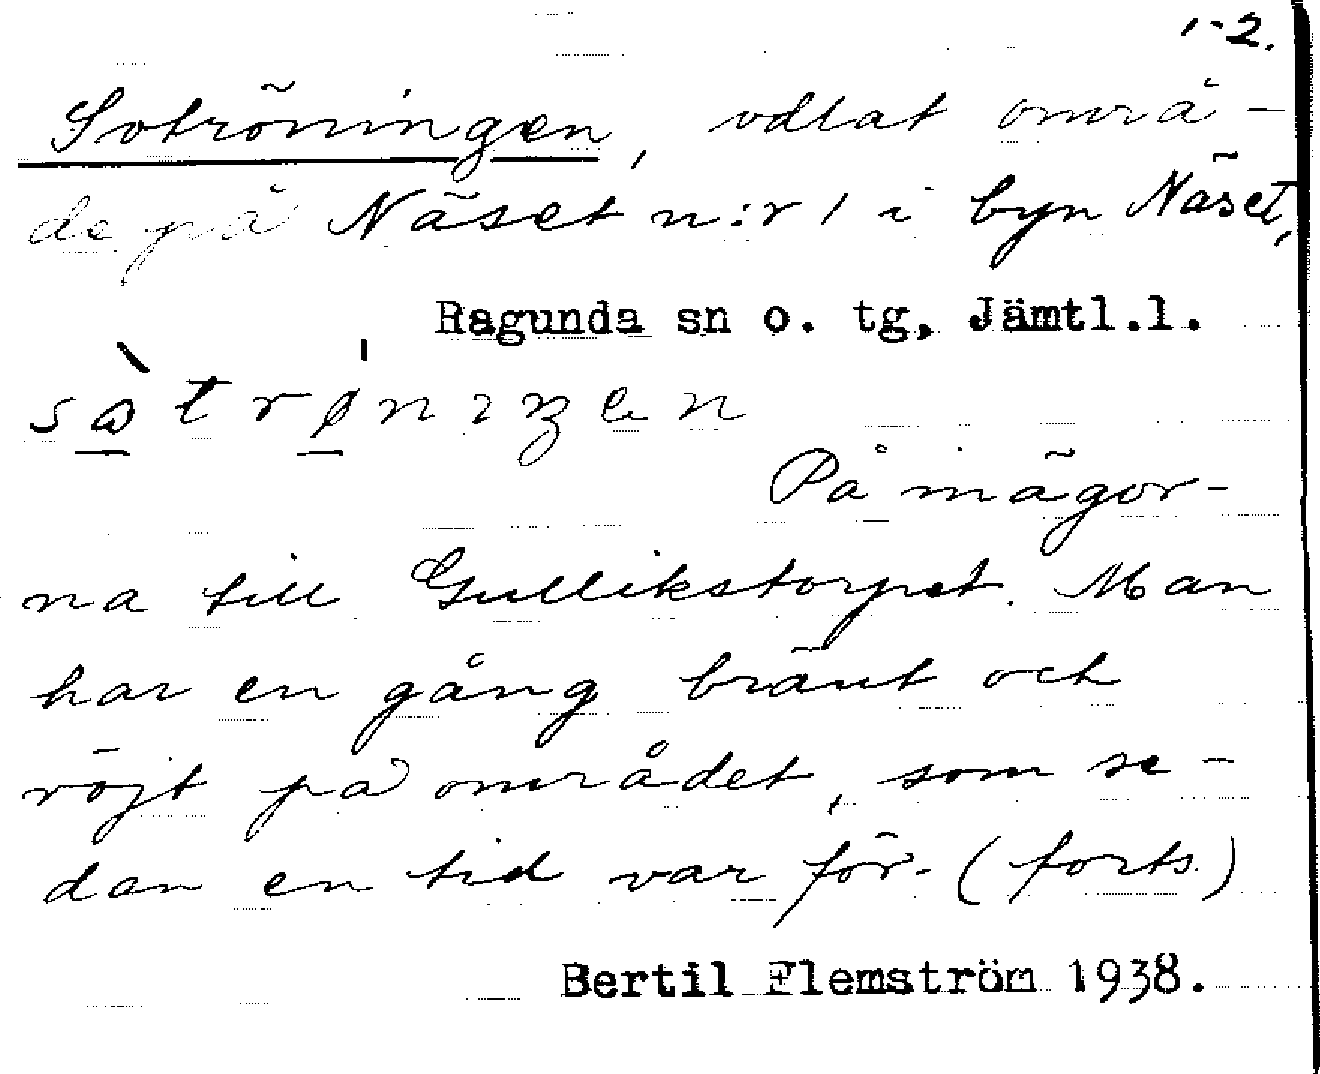 1-2.
Sotröningen, odlat områ-
de på Näset n:r 1 i byn Näset,
Ragunda sn o. tg, Jämtl.l.
På mägor-
na till Gullikstorpet. Man
har en gång bränt och
röjt på området, som se-
dan en tid var för- (forts.)
Bertil Flemström 1938.